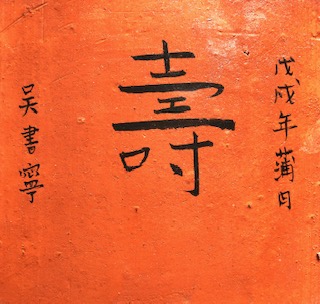 戊戌年蒲月
壽
吳書寧